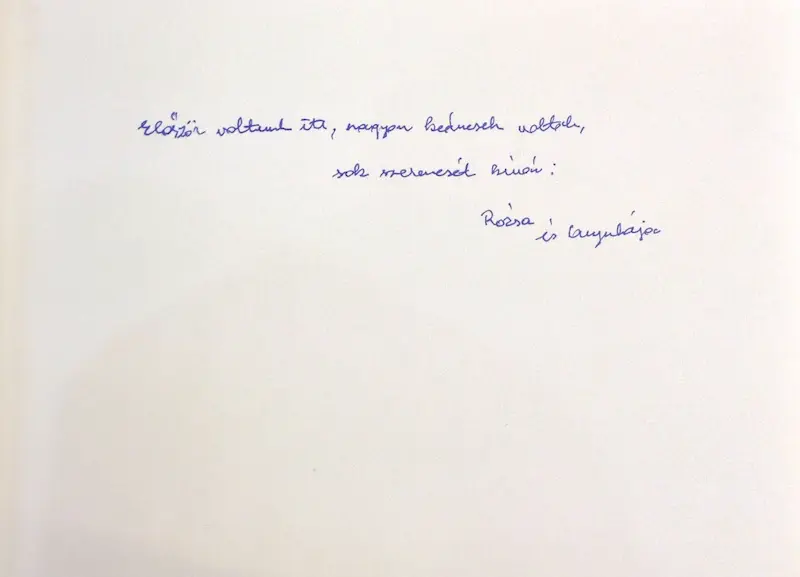 Először voltunk itt, nagyon kedvesek voltak,
sok szerencsét kíván:
Rózsa
és Anyukája